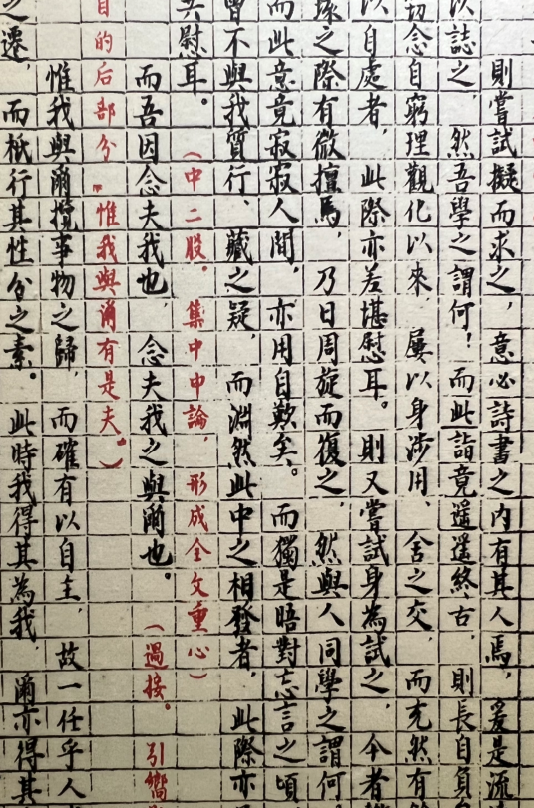 則嘗試擬而求之，意必詩書之內有其人焉，爰是流
以誌之，然吾學之謂何！而此詣竟遥遥終古，則長自負
初念自窮理觀化以來，屢以身涉用，舍之交，而充然有
以自處者，此際亦差堪慰耳。則又嘗試身為試之，今者
之際有微擅焉，乃日周旋而復之，然與人同學之謂何
而此意竟寂寂人間，亦用自歎矣。而獨是晤對忘言之頃
曾不與我質行、藏之疑，而淵然此中之相發者，此際亦
共慰耳。（中二股。集中申論，形成全文重心）
而吾因念夫我也，念夫我之與爾也。（過接。引嚮
目的后部分"惟我與爾有是夫"）
惟我與爾攬事物之歸，而確有以自主，故一任乎人
之遷，而柢行其性分之素。此時我得其為我，爾亦得其